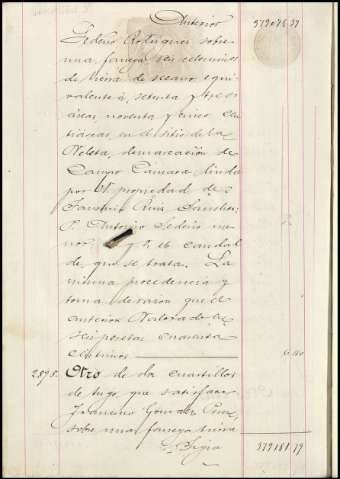 Anterior 579076 39
Sedeño Rodriguez sobre
una fanega seis celemines
de tierra de secano equi
valente á setenta y tres
áreas, noventa y cinco cen
tiareas, en el sitio de la
demarcación de
Campo Cámara linda
por N. propiedad de
Faustino Ruiz Sanchez
P. Antonio Sedeño me
nor y h el caudal
de que se trata. La
misma procedencia y
toma de razon que el
anterior Valorado en
seis pesetas cuarenta
centimos
2898. Otro de dos cuartillos
de trigo que satisface
Francisco Gonzalez Cruz,
sobre una fanega tierra
Sigue 579181 79